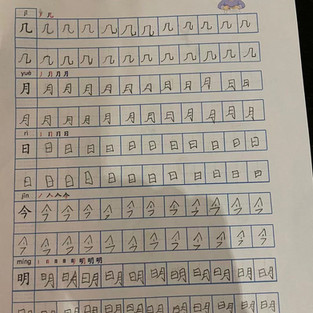 jǐ 丿 几
几 几 几 几 几 几 几 几 几 几 几 几
几 几 几 几 几 几 几 几 几 几 几 几
yuè 丿 月 月 月
月 月 月 月 月 月 月 月 月 月 月
月 月 月 月 月 月 月 月 月 月 月
rì 丨 冂 日 日
日 日 日 日 日 日 日 日 日 日 日
日 日 日 日 日 日 日 日 日 日 日
jīn 丿 人 亼 今
今 今 今 今 今 今 今 今 今 今 今
今 今 今 今 今 今 今 今 今 今 今
míng 丨 冂 日 日 明 明 明
明 明 明 明 明 明 明 明 明 明 明
明 明 明 明 明 明 明 明 明 明 明